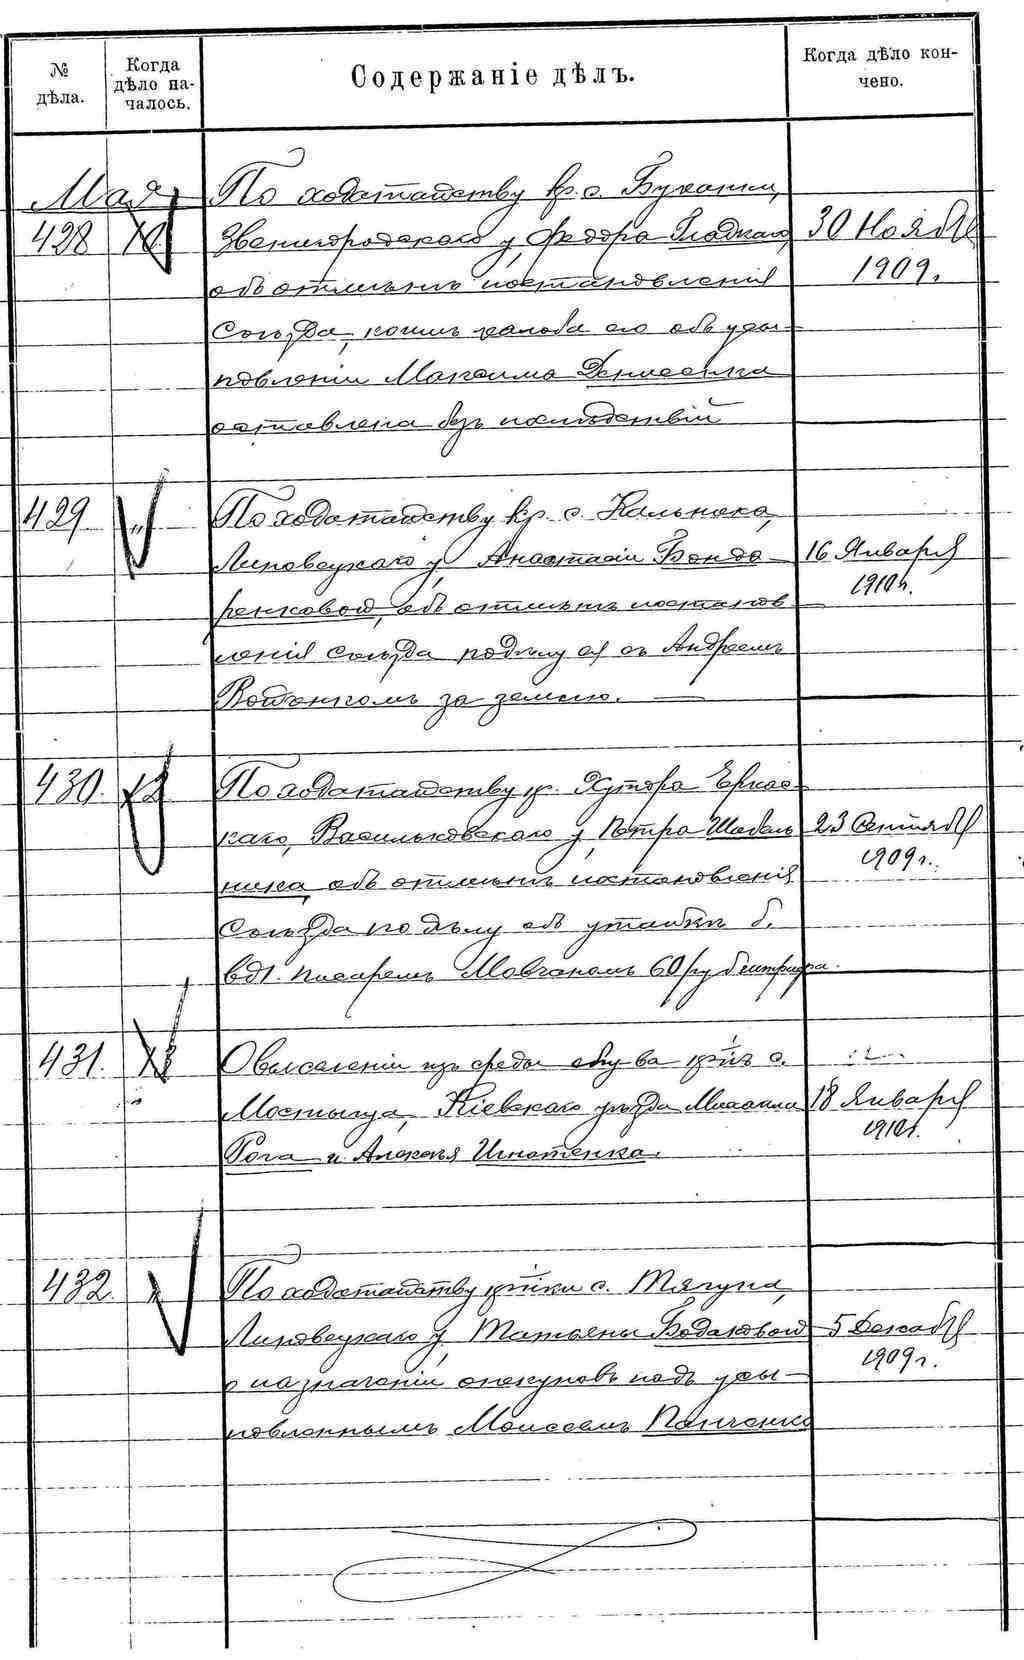 № дѣла.
Когда дѣло на-
чалось.
Содержаніе дѣлъ.
Когда дѣло кон-
чено.
Мая
428 10
По ходатайству кр. с. Бужанки,
Звенигородскаго у, Федора Гладкаго,
объ отмѣнѣ постановленія
Съѣзда, коимъ жалоба его объ усы-
новленіи Максима Денисенка
оставлена безъ послѣдствій
30 Ноября
1909 г.
429 "
По ходатайству кр. с. Кальника,
Липовецкаго у, Анастасіи Бонда-
ренковой, объ отмѣнѣ постанов
ленія съѣзда по дѣлу ея съ Андреемъ
за землю.
16 Января
1910 г.
430. 12
По ходатайству кр. Хутора
скаго, Васильковскаго у, Петра Шабель
ника, объ отмѣнѣ постановленія
Съѣзда по дѣлу объ утайкѣ б.
вол. писаремъ Мовчаномъ 60 руб
23 Сентября
1909 г.
431. 13
О выселеніи изъ среды общ ва кр-нъ с.
Мостыща, Кіевскаго уѣзда Михаила
Рога и Алексѣя Игнатенка.
18 Января
1910 г.
432. "
По ходатайству кр-нки с. Тягуна,
Липовецкаго у, Татьяны Бодаковой
о назначеніи опекуновъ надъ усы-
новленнымъ Моисеемъ Панченко
5 Декабря
1909 г.